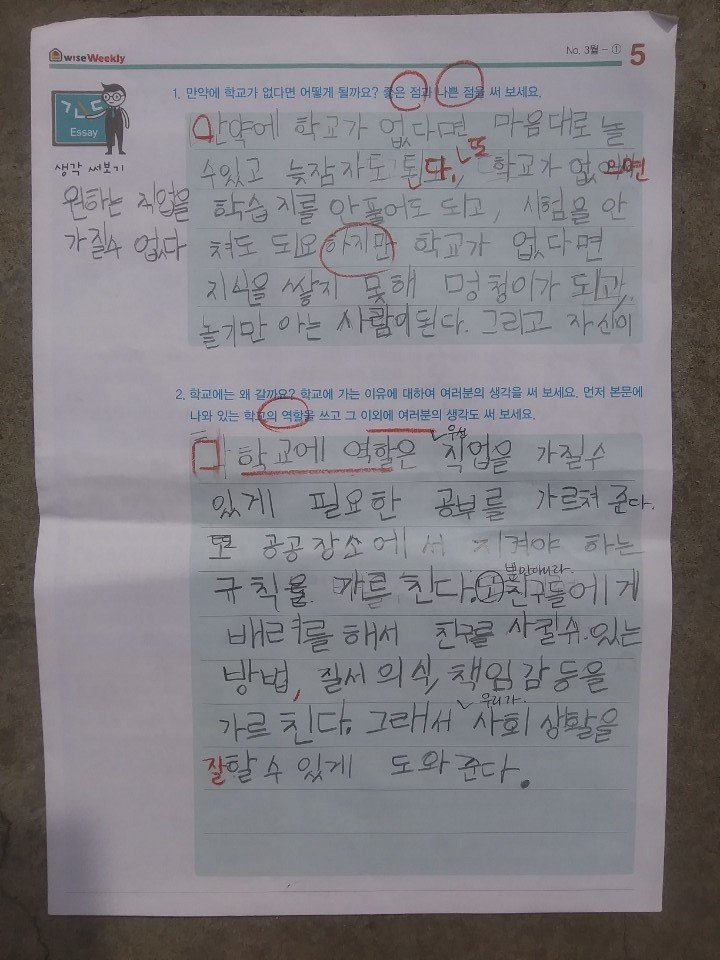 wise Weekly
No. 3월 - ① 5
간드
Essay
생각 써보기
1. 만약에 학교가 없다면 어떻게 될까요? 좋은 점과 나쁜 점을 써 보세요.
만약에 학교가 없다면 마음대로 놀
수있고 늦잠자도 된다. 또 학교가 없으면
학습지를 안풀어도 되고, 시험을 안
쳐도 되요 하지만 학교가 없다면
지식을 쌓지 못해 멍청이가 되고,
놀기만 아는 사람이된다. 그리고 자신이
원하는 직업을
가질수 없다
2. 학교에는 왜 갈까요? 학교에 가는 이유에 대하여 여러분의 생각을 써 보세요. 먼저 본문에
나와 있는 학교의 역할을 쓰고 그 이외에 여러분의 생각도 써 보세요.
학교에 역할은 우선 직업을 가질수
있게 필요한 공부를 가르쳐 준다.
또 공공장소에서 지켜야 하는
규칙을 가르친다. 뿐만아니라 친구들에게
배려를해서 친구를 사귈수있는
방법, 질서의식, 책임감등을
가르친다. 그래서 우리가 사회 생활을
잘할수 있게 도와준다.